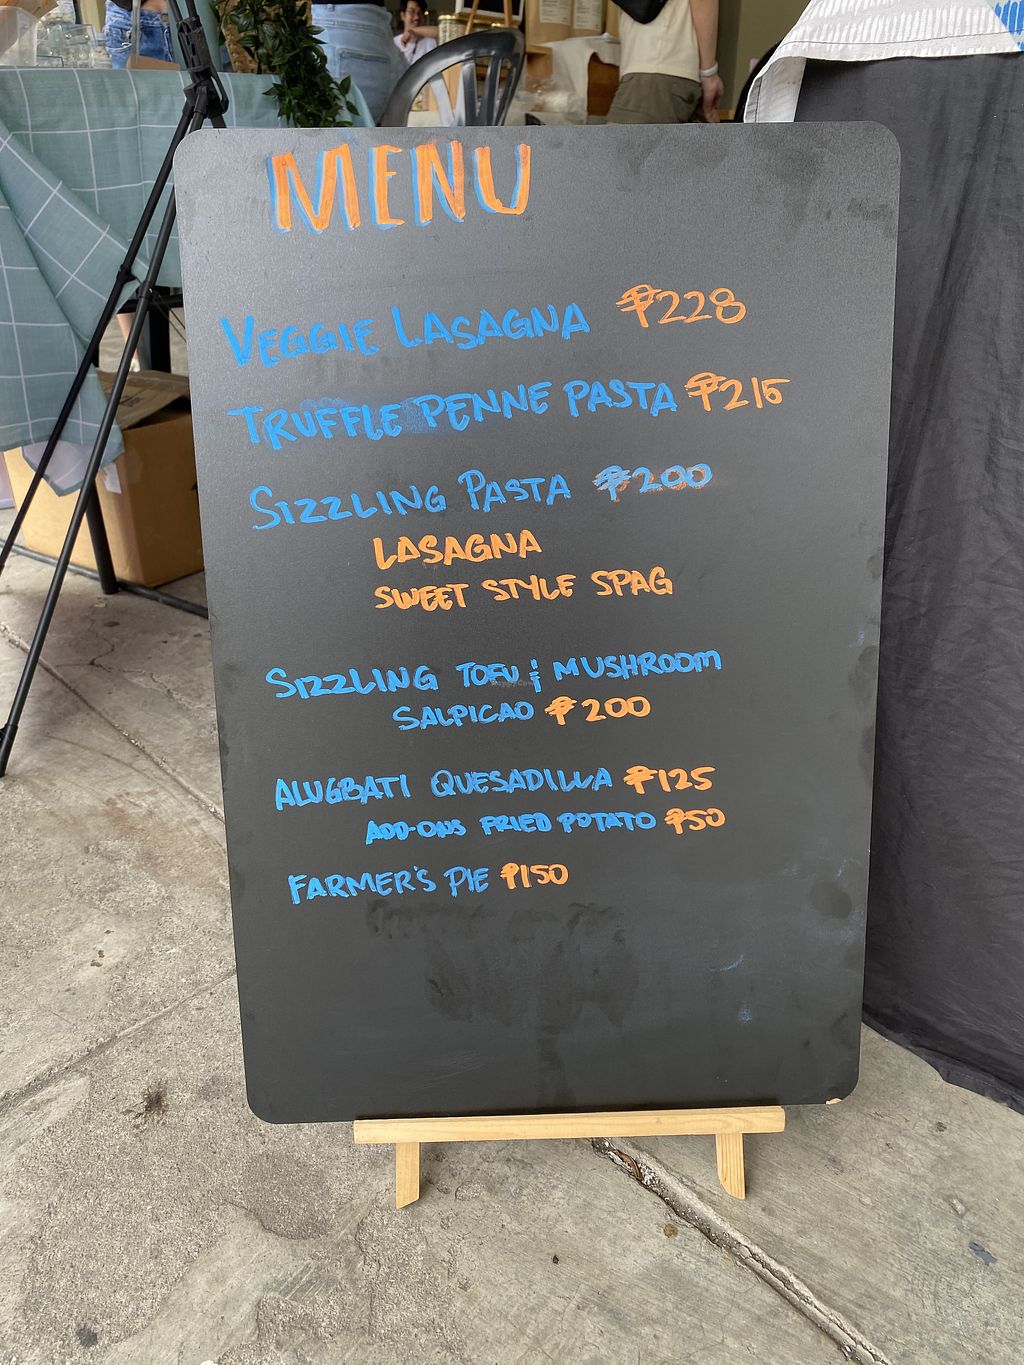 MENU
VEGGIE LASAGNA ₱228
TRUFFLE PENNE PASTA ₱215
SIZZLING PASTA ₱200
LASAGNA
SWEET STYLE SPAG
SIZZLING TOFU & MUSHROOM
SALPICAO ₱200
ALUGBATI QUESADILLA ₱125
ADD-ONS FRIED POTATO ₱50
FARMER'S PIE ₱150